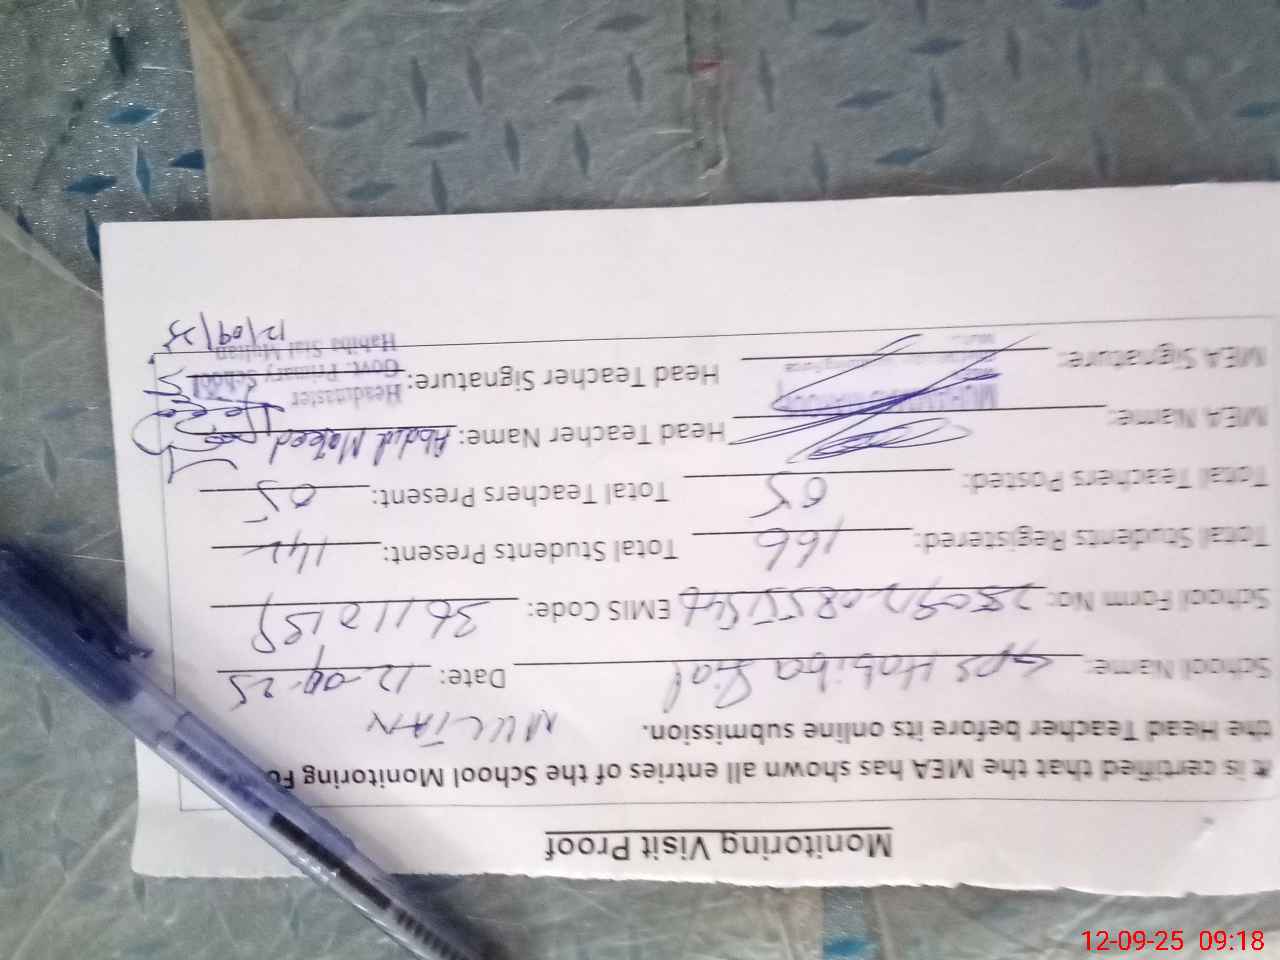 Monitoring Visit Proof
It is certified that the MEA has shown all entries of the School Monitoring
the Head Teacher before its online submission. MULTAN
School Name: GPS Habiba Sial Date: 12-09-25
School Form No: EMIS Code:
Total Students Registered: 166 Total Students Present: 142
Total Teachers Posted: 05 Total Teachers Present: 05
MEA Name: Head Teacher Name: Abdul Majeed
MEA Signature: Head Teacher Signature:
Headmaster
Govt. Primary School
Habiba Sial Multan
12/09/25
12-09-25 09:18